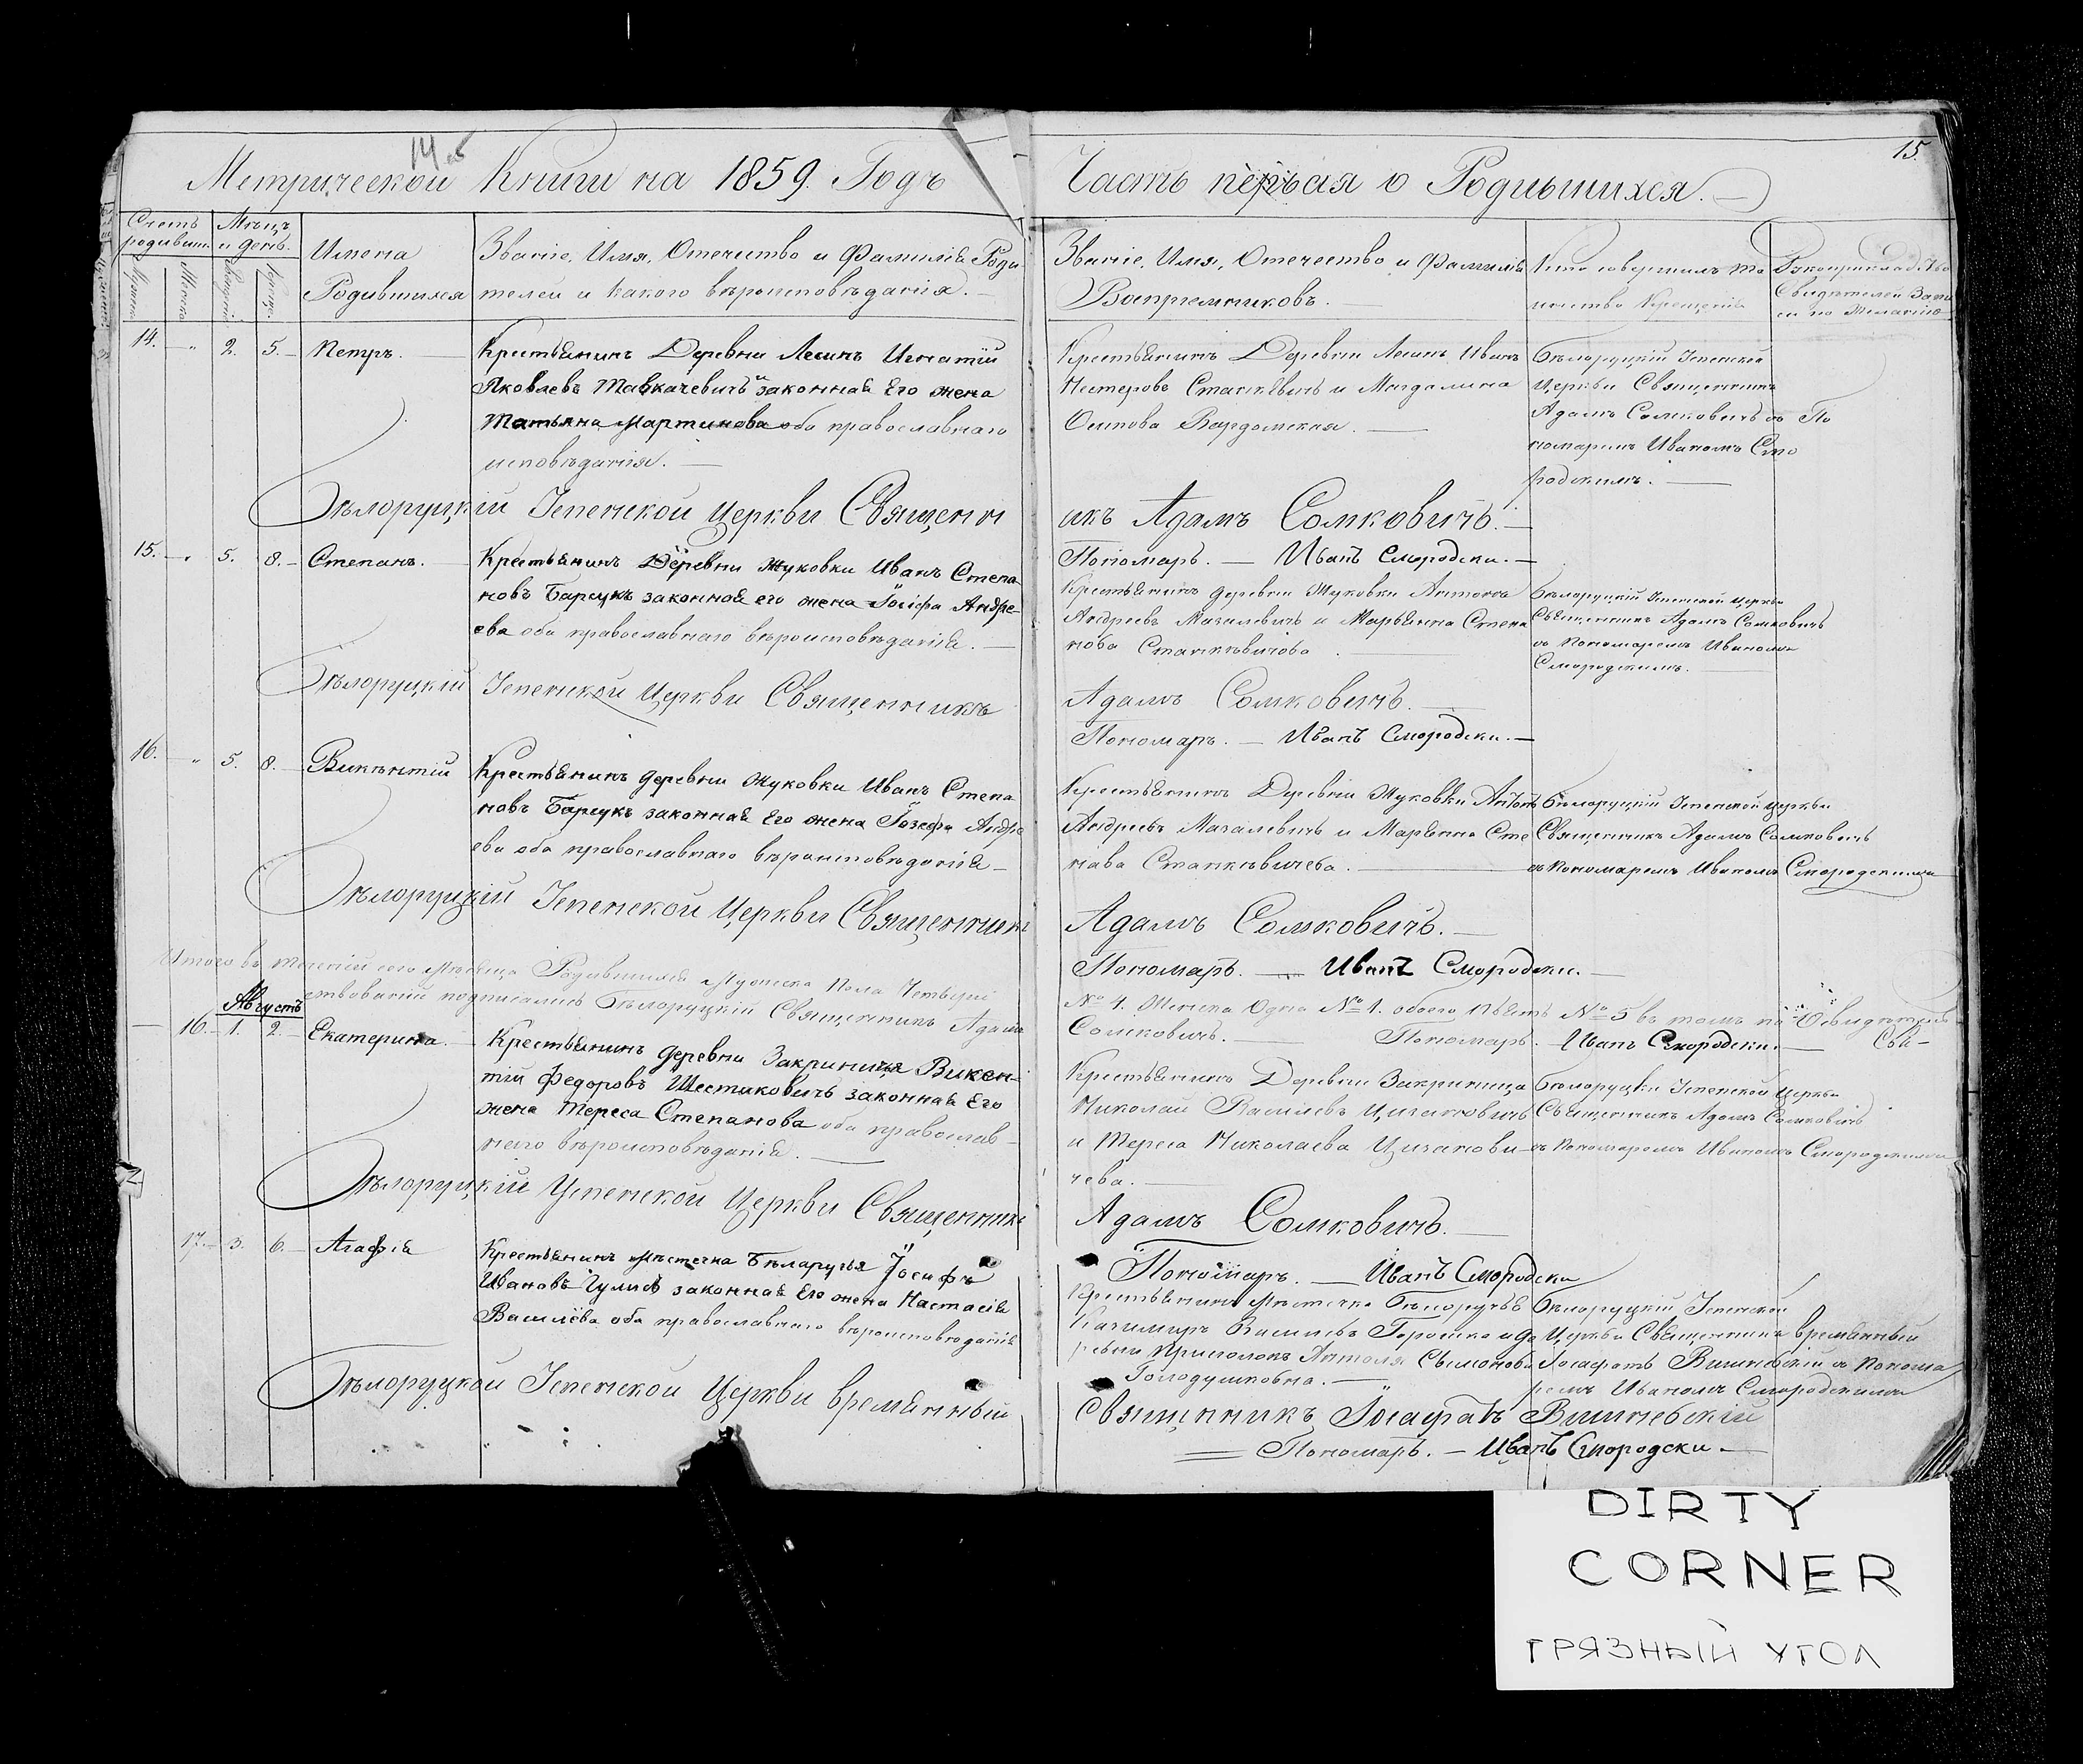 14 об
15.
Метрической Книги на 1859. Годъ
Часть первая о Родившихся.
Счетъ родивших.
Мѣсяцъ и день.
Имена
Родившихся
Званіе, Имя, Отечество и Фамилія Роди
телей и какого вѣроисповѣданія.
Званіе, Имя, Отечество и Фамилія
Воспріемниковъ.
Кто совершилъ та
инство Крещенія
Рукоприкладство
Свидѣтелей Запи
си по Желанію
14. — „ 2. 5. Петръ.
Крестьянинъ Деревни Лесинъ Игнатій
Яковлевъ Тавкачевичъ и законная Его жена
Татьяна Мартинова оба православнаго
исповѣданія.
Крестьянинъ Деревни Лесинъ Иванъ
Нестеровъ Станкѣвичъ и Магдалина
Осипова Вардомская.
Бѣлоруцкій Успенской
Церкви Священникъ
Адамъ Сомковичъ съ По
номаремъ Иваномъ Смо
родскимъ.
Бѣлоруцкій Успенской Церкви Священн
икъ Адамъ Сомковичъ.
Пономаръ. — Иванъ Смородски.
15. — „ 5. 8. Степанъ.
Крестьянинъ Деревни Жуковки Иванъ Степа
новъ Барсукъ законная его жена Іосифа Андре
ева оба православнаго вѣроисповѣданія.
Крестьянинъ деревни Жуковки Антонъ
Андреевъ Масалевичъ и Марьянна Степа
нова Станкѣвичова.
Бѣлоруцкій Успенской Церкви
Священникъ Адамъ Сомковичъ
съ Пономаремъ Иваномъ
Смородскимъ.
Бѣлоруцкій Успенской Церкви Священникъ
Адамъ Сомковичъ.
Пономаръ. — Иванъ Смородски.
16. — „ 5. 8. Викѣнтій
Крестьянинъ деревни Жуковки Иванъ Степа
новъ Барсукъ законная Его жена Іозефа Андре
ева оба православнаго вѣроисповѣданія
Крестьянинъ Деревни Жуковки Антонъ
Андреевъ Масалевичъ и Марьянна Сте
пава Станкѣвичева.
Бѣлоруцкій Успенской Церкви
Священникъ Адамъ Сомковичъ
съ Пономаремъ Иваномъ Смородскимъ
Бѣлоруцкій Успенской Церкви Священникъ
Адамъ Сомковичъ.
Пономаръ. — Иванъ Смородски.
Итого въ теченіи сего Мѣсяца Родившихся Мужеска Пола Четыри
№ 4. Женска Одна № 1. обоего Пять № 5 въ томъ по Освидѣтель
ствованіи подписались Бѣлоруцкій Священникъ Адамъ
Сомковичъ. Пономаръ. Иванъ Смородски.
Августъ
— 16. 1. 2. Екатерина.
Крестьянинъ деревни Закриница Викен
тій Федоровъ Шестиковичъ законная Его
жена Тереса Степанова оба православ
наго вѣроисповѣданія.
Крестьянинъ Деревни Закриница
Николай Василевъ Цигановичъ
и Тереса Николаева Цыганови
чева.
Бѣлоруцки Успенской Церкви
Священникъ Адамъ Сомковичъ
съ Пономаремъ Иваномъ Смородскимъ
Бѣлоруцкій Успенской Церкви Священникъ
Адамъ Сомковичъ.
Пономаръ. — Иванъ Смородски
17. 3. 6. Агафія
Крестьянинъ Мѣстечка Бѣларучья Іосифъ
Ивановъ законная Его жена Настасія
Василева оба православнаго вѣроисповѣданія
Крестьянинъ Мѣстечка Бѣлоручья
Казимиръ Василевъ Горошко и де
ревни
Бѣлоруцкій Успенской
Церкви Священникъ времянный
Іосафатъ Вишневскій съ Понома
ремъ Иваномъ Смородскимъ
Бѣлоруцкой Успенской Церкви времянный
Священникъ Іосафатъ Вишневскій
Пономаръ. — Иванъ Смородски
DIRTY
CORNER
ГРЯЗНЫЙ УГОЛ